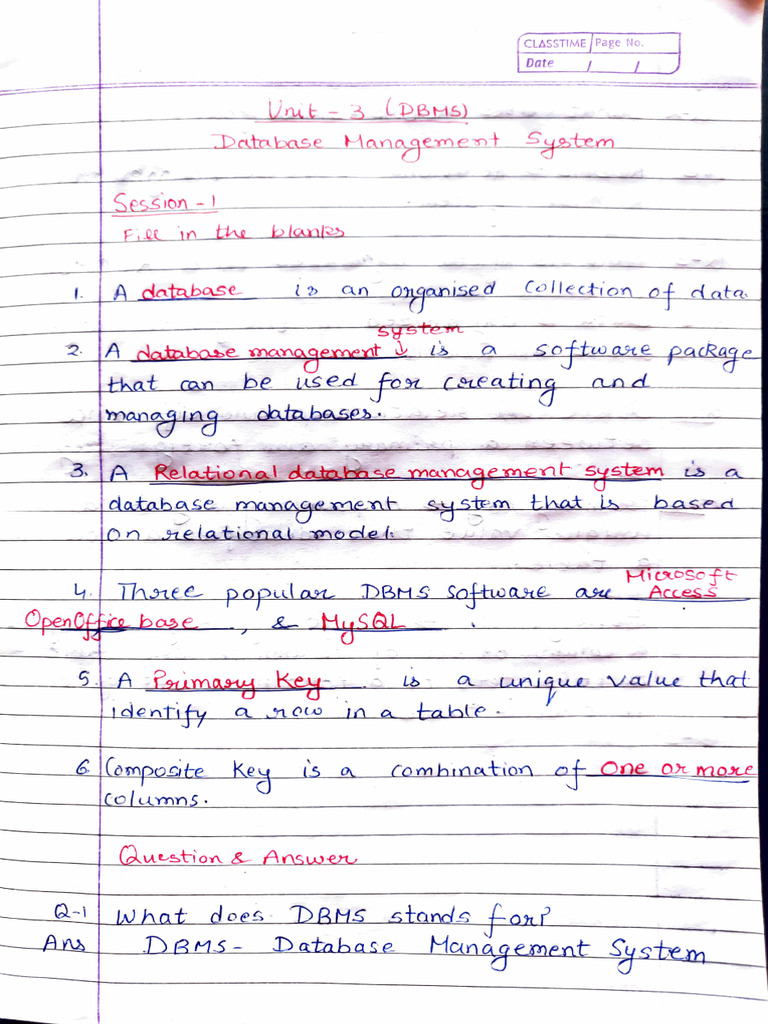 CLASSTIME Page No.
Date / /
Unit - 3 (DBMS)
Database Management System
Session - 1
Fill in the blanks
1. A database is an organised collection of data.
system
2. A database management ↓ is a software package
that can be used for creating and
managing databases.
3. A Relational database management system is a
database management system that is based
on relational model.
Microsoft
4. Three popular DBMS software are Access
OpenOffice base , & MySQL .
5. A Primary Key is a unique value that
identify a row in a table.
6. Composite Key is a combination of one or more
columns.
Question & Answer
Q-1 What does DBMS stands for?
Ans DBMS - Database Management System